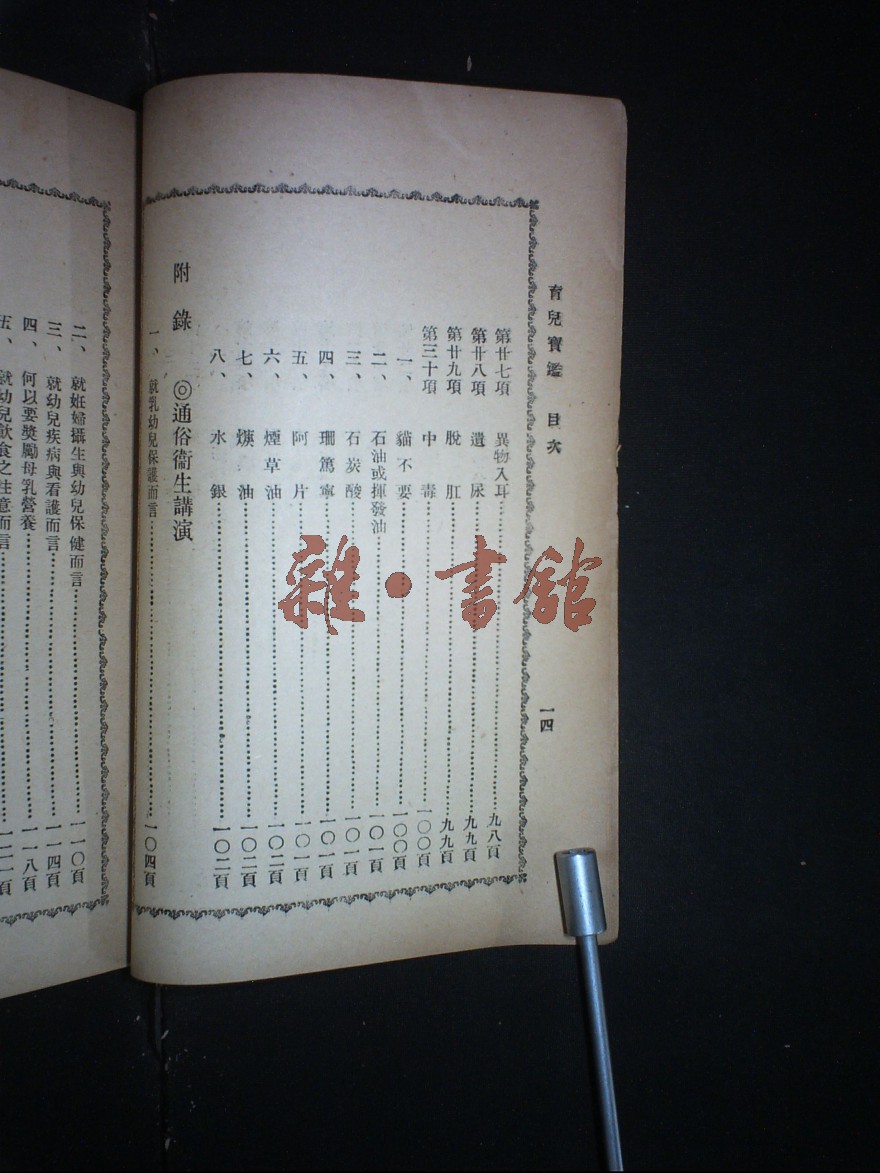 育兒寶鑑 目次
一四
第廿七項 異物入耳 九八頁
第廿八項 遺尿 九九頁
第廿九項 脫肛 九九頁
第三十項 中毒 一〇〇頁
一、 貓不要 一〇〇頁
二、 石油或揮發油 一〇一頁
三、 石炭酸 一〇一頁
四、 珊篤寧 一〇一頁
五、 阿片 一〇一頁
六、 煙草油 一〇二頁
七、 油 一〇二頁
八、 水銀 一〇二頁
附錄 ◎通俗衞生講演
一、 就乳幼兒保護而言 一〇四頁
二、 就妊婦攝生與幼兒保健而言 一一〇頁
三、 就幼兒疾病與看護而言 一一四頁
四、 何以要奬勵母乳營養 一一八頁
五、 就幼兒飲食之注意而言 一二一頁
雜·書館